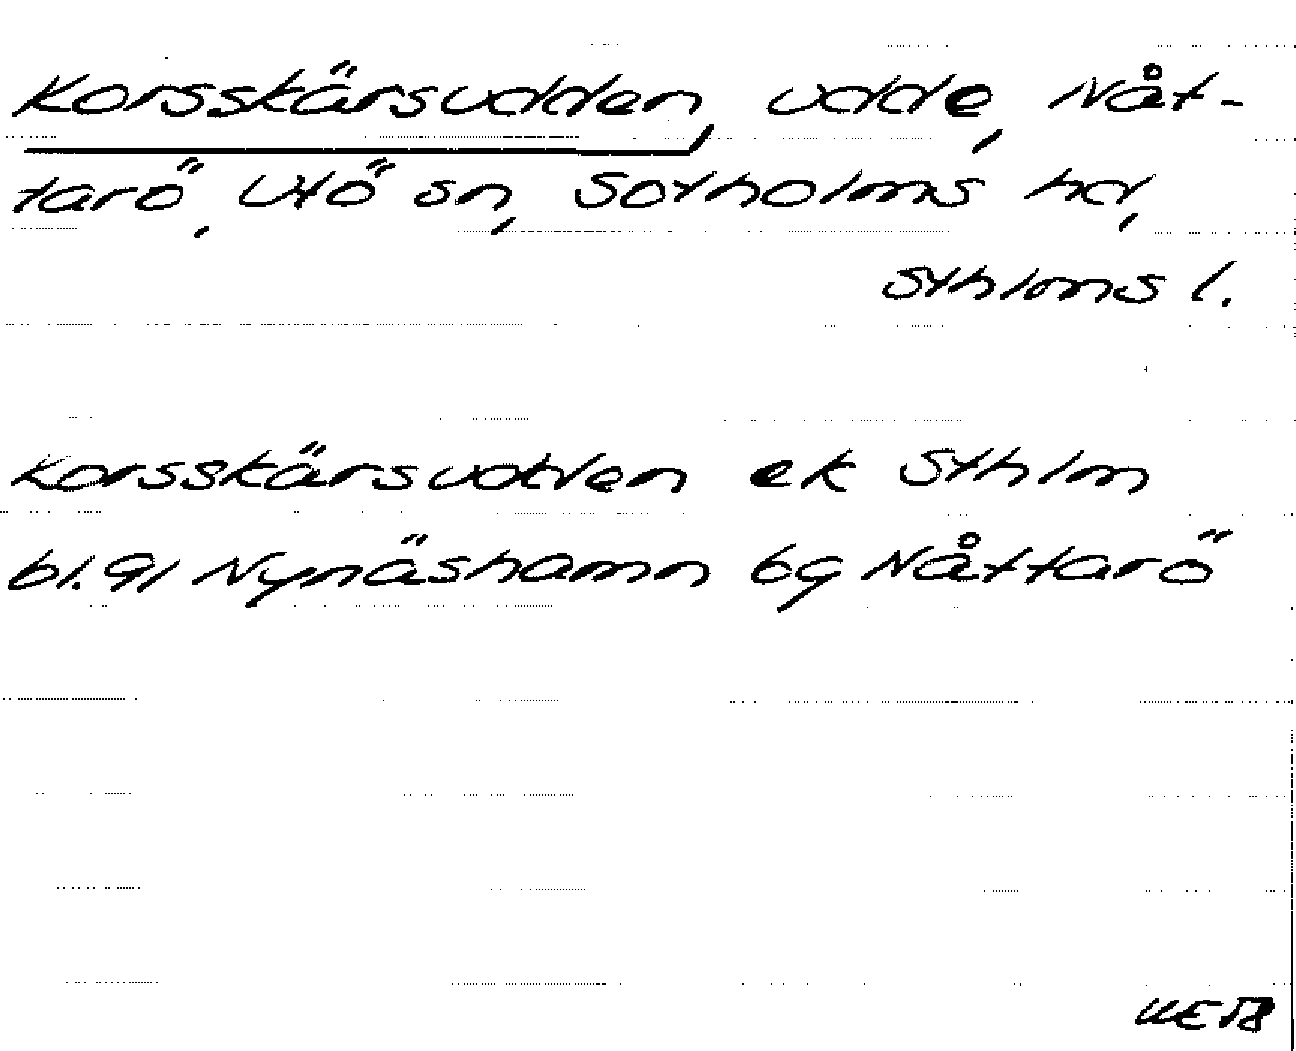 Korsskärsudden, udde, Nåt-
tarö, Utö sn, Sotholms hd,
Sthlms l.
Korsskärsudden ek Sthlm
bl. 91 Nynäshamn bg Nåttarö